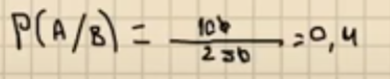 P(A/B) = 10b / 25b = 0,4